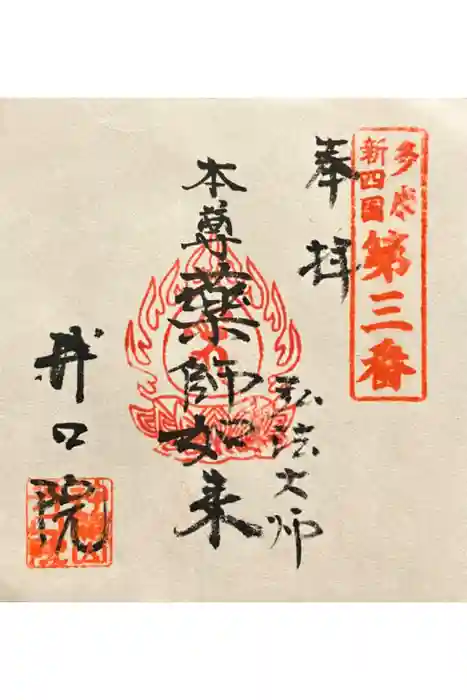 多摩
新四国
第三番
奉拝
弘法大师
本尊薬師如来
井口院